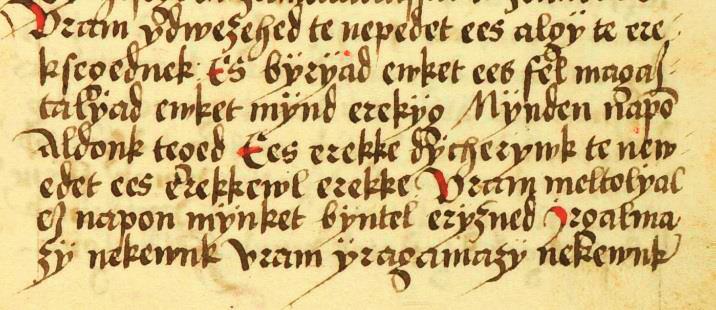 Vram ydwezehed te nepedet ees algy te ere
ksegednek Es byryad ewket ees fel magaz
talyad ewket mynd erekyg Mynden napon
aldonk teged Ees erekke dycherywk te new
edet ees erekkewl erekke Vram meltolyal
ez napon mynket byntel eryzned Irgalma
zy nekewnk vram yragamazy nekewnk